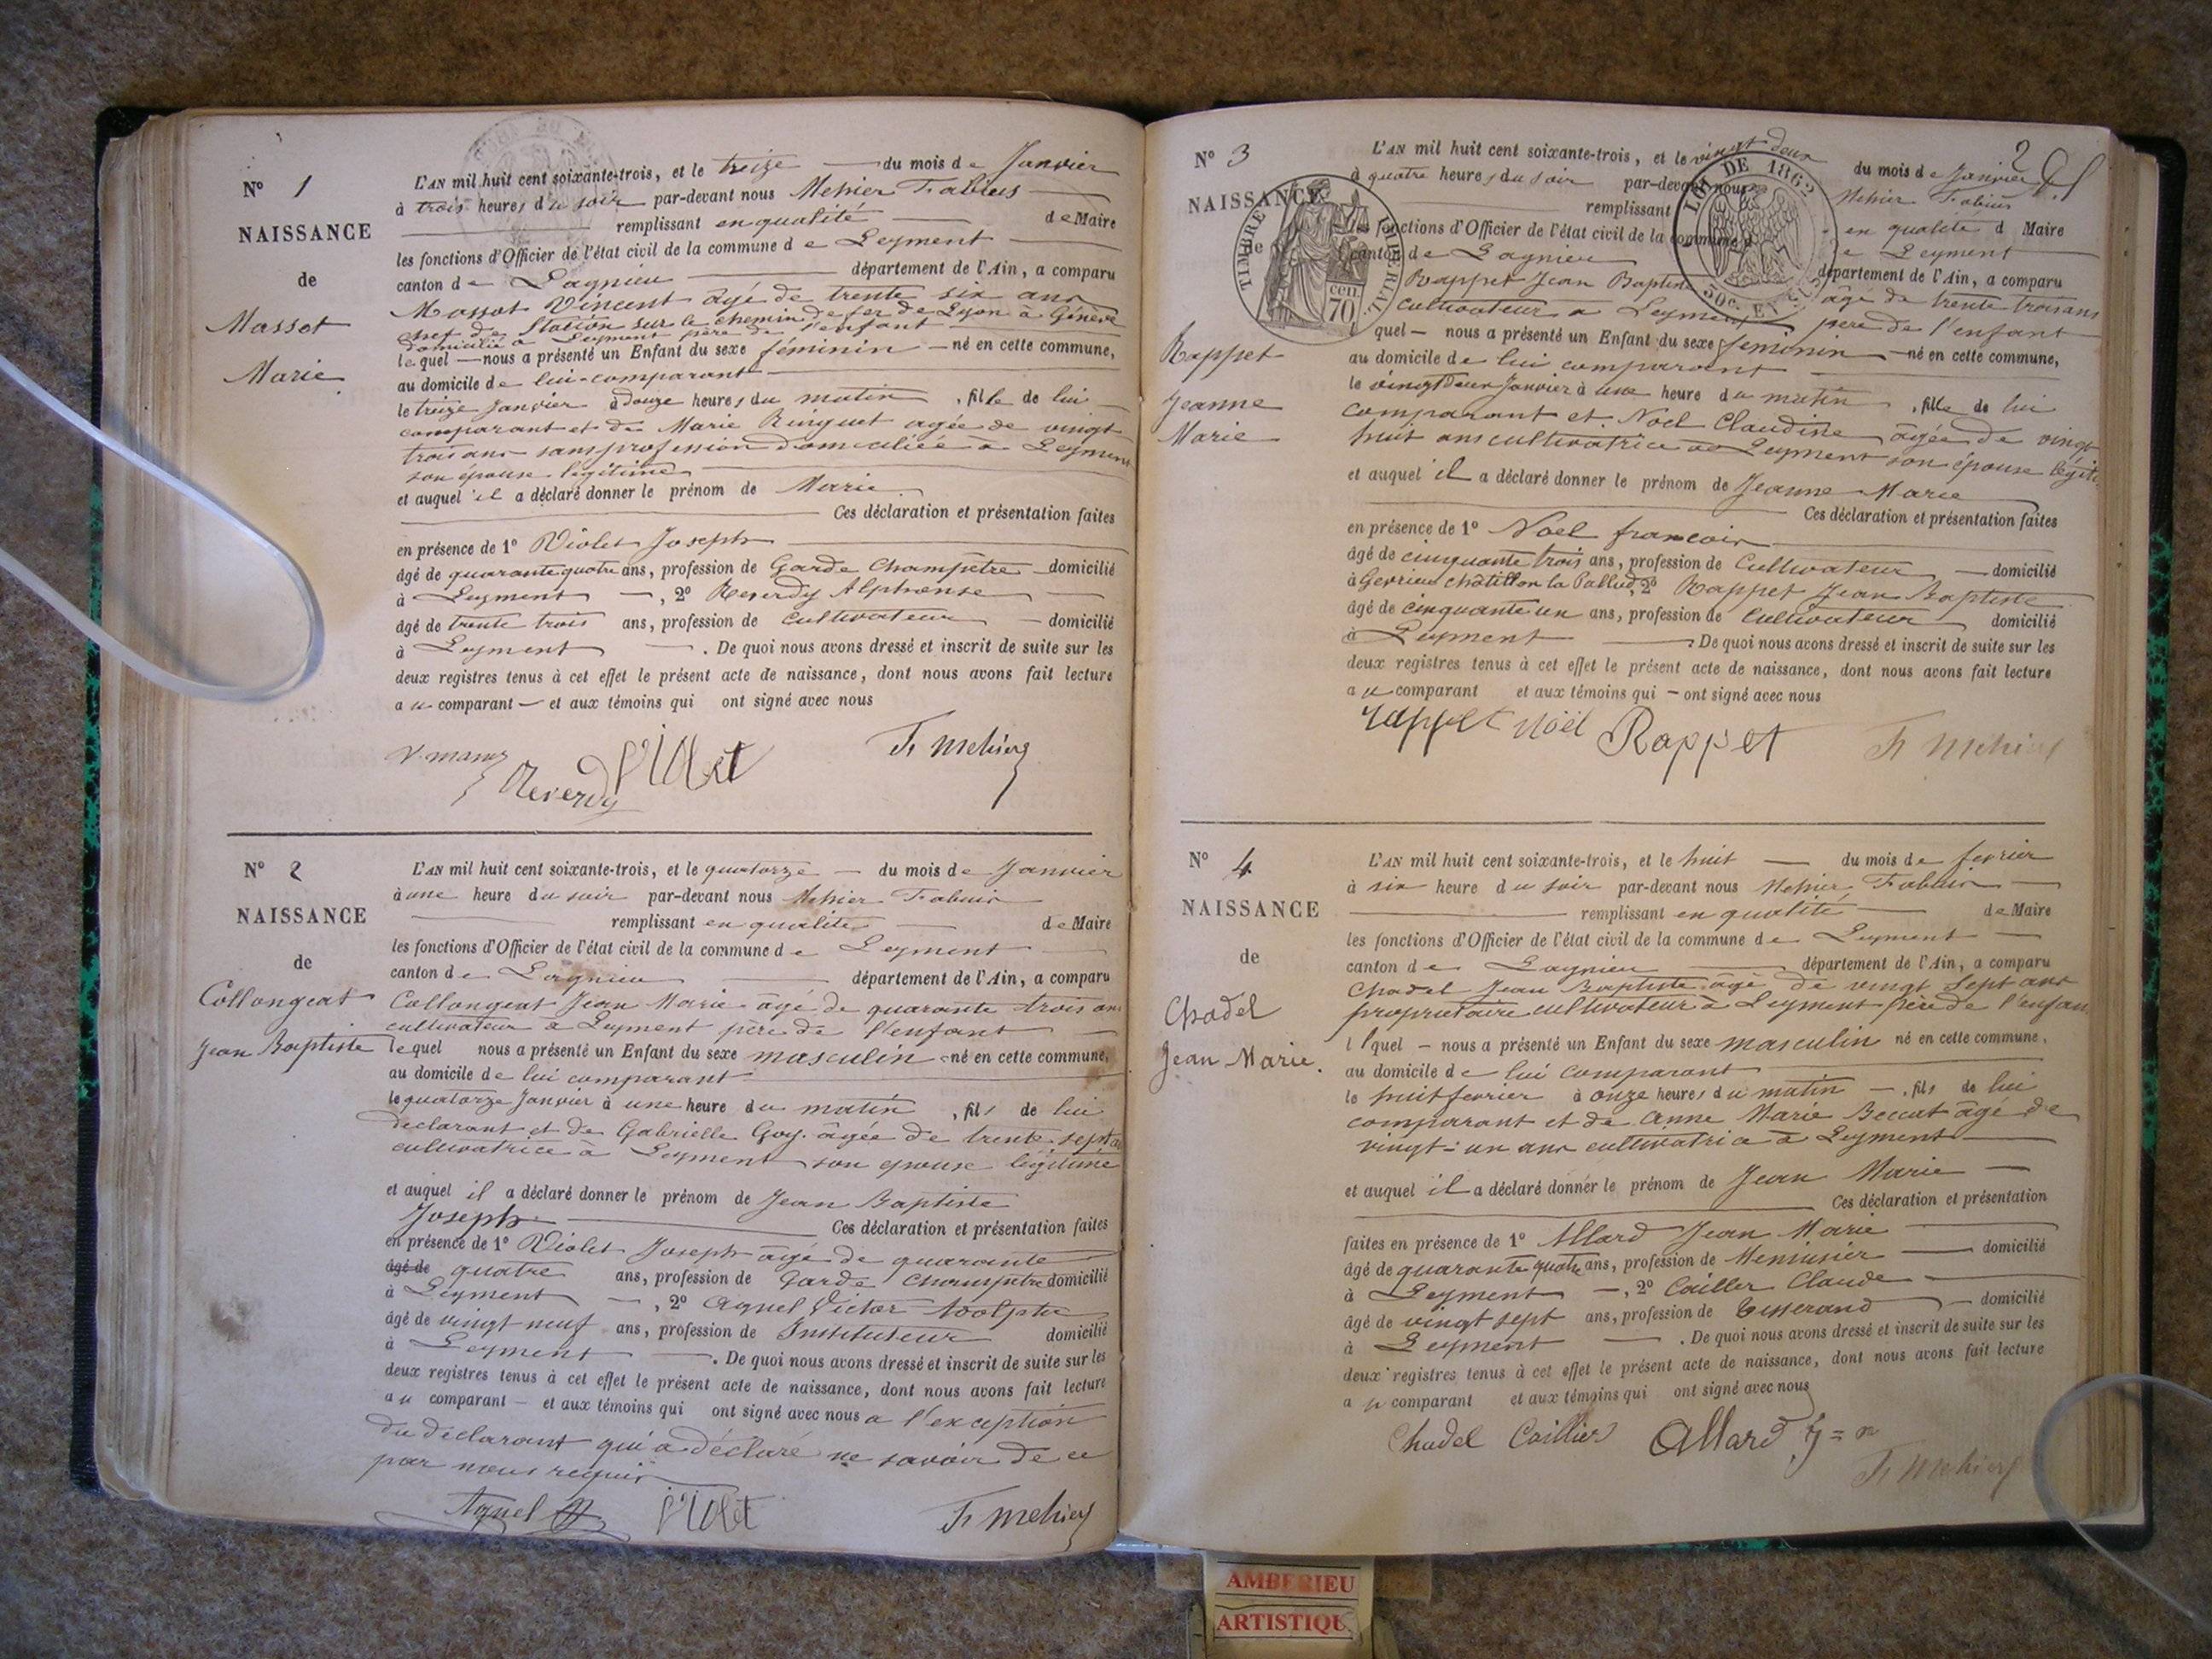 N° 1
NAISSANCE
de
Massot
Marie
L'AN mil huit cent soixante-trois, et le treize du mois de Janvier
à trois heures du soir par-devant nous Mehier Fabius
remplissant en qualité de Maire
les fonctions d'Officier de l'état civil de la commune de Leyment
canton de Lagnieu département de l'Ain, a comparu
Massot Vincent âgé de trente six ans
chef de Station sur le chemin de fer de Lyon à Genève
domicilié à Leyment père de l'enfant
lequel nous a présenté un Enfant du sexe féminin né en cette commune,
au domicile de lui-comparant
le treize Janvier à douze heures du matin, fille de lui
comparant et de Marie Ringuet agée de vingt
trois ans sans profession domiciliée à Leyment
son épouse légitime
et auquel il a déclaré donner le prénom de Marie
Ces déclaration et présentation faites
en présence de 1° Violet Joseph
âgé de quarante quatre ans, profession de Garde Champêtre domicilié
à Leyment, 2° Reverdy Alphonse
âgé de trente trois ans, profession de Cultivateur domicilié
à Leyment. De quoi nous avons dressé et inscrit de suite sur les
deux registres tenus à cet effet le présent acte de naissance, dont nous avons fait lecture
au comparant et aux témoins qui ont signé avec nous
Reverdy Violet Fs Mehier
N° 2
NAISSANCE
de
Collongeat
Jean Baptiste
L'AN mil huit cent soixante-trois, et le quatorze du mois de Janvier
à une heure du soir par-devant nous Mehier Fabius
remplissant en qualité de Maire
les fonctions d'Officier de l'état civil de la commune de Leyment
canton de Lagnieu département de l'Ain, a comparu
Collongeat Jean Marie âgé de quarante trois ans
cultivateur à Leyment père de l'enfant
lequel nous a présenté un Enfant du sexe masculin né en cette commune,
au domicile de lui comparant
le quatorze Janvier à une heure du matin, fils de lui
declarant et de Gabrielle Goy âgée de trente sept ans
cultivatrice à Leyment son epouse légitime
et auquel il a déclaré donner le prénom de Jean Baptiste
Joseph Ces déclaration et présentation faites
en présence de 1° Violet Joseph âgé de quarante
âgé de quatre ans, profession de Garde Champêtre domicilié
à Leyment, 2° Agnel Victor Adolphe
âgé de vingt neuf ans, profession de Instituteur domicilié
à Leyment. De quoi nous avons dressé et inscrit de suite sur les
deux registres tenus à cet effet le présent acte de naissance, dont nous avons fait lecture
au comparant et aux témoins qui ont signé avec nous a l'exception
du déclarant qui a déclaré ne savoir de ce
par nous requis
Agnel Violet Fs Mehier
2
N° 3
NAISSANCE
de
Rappet
Jeanne
Marie
TIMBRE IMPERIAL
70 cen
LOI DE 1862
50c. EN
L'AN mil huit cent soixante-trois, et le vingt deux du mois de Janvier
à quatre heures du soir par-devant nous Mehier Fabius
remplissant en qualité d Maire
les fonctions d'Officier de l'état civil de la commune de Leyment
canton de Lagnieu département de l'Ain, a comparu
Rappet Jean Baptiste âgé de trente trois ans
cultivateur a Leyment père de l'enfant
quel nous a présenté un Enfant du sexe féminin né en cette commune,
au domicile de lui comparant
le vingt deux Janvier à une heure du matin, fille de lui
comparant et Noel Claudine âgée de vingt
huit ans cultivatrice a Leyment son épouse légiti
et auquel il a déclaré donner le prénom de Jeanne Marie
Ces déclaration et présentation faites
en présence de 1° Noël francois
âgé de cinquante trois ans, profession de Cultivateur domicilié
à Gevrieu Châtillon la Pallud, 2° Rappet Jean Baptiste
âgé de cinquante un ans, profession de Cultivateur domicilié
à Leyment. De quoi nous avons dressé et inscrit de suite sur les
deux registres tenus à cet effet le présent acte de naissance, dont nous avons fait lecture
au comparant et aux témoins qui ont signé avec nous
rappet Noël Rappet Fs Mehier
N° 4
NAISSANCE
de
Chadel
Jean Marie.
L'AN mil huit cent soixante-trois, et le huit du mois de fevrier
à six heure du soir par-devant nous Mehier Fabius
remplissant en qualité de Maire
les fonctions d'Officier de l'état civil de la commune de Leyment
canton de Lagnieu département de l'Ain, a comparu
Chadel Jean Baptiste âgé de vingt sept ans
proprietaire cultivateur à Leyment père de l'enfan
lequel nous a présenté un Enfant du sexe masculin né en cette commune,
au domicile de lui comparant
le huit fevrier à onze heures du matin, fils de lui
comparant et de Anne Marie Beccat âgé de
vingt-un ans cultivatrice à Leyment
et auquel il a déclaré donner le prénom de Jean Marie
Ces déclaration et présentation
faites en présence de 1° Allard Jean Marie
âgé de quarante quatre ans, profession de Menuisier domicilié
à Leyment, 2° Cailler Claude
âgé de vingt sept ans, profession de Tisserand domicilié
à Leyment. De quoi nous avons dressé et inscrit de suite sur les
deux registres tenus à cet effet le présent acte de naissance, dont nous avons fait lecture
au comparant et aux témoins qui ont signé avec nous
Chadel Caillier Allard J=m
Fs Mehier
AMBERIEU
ARTISTIQU